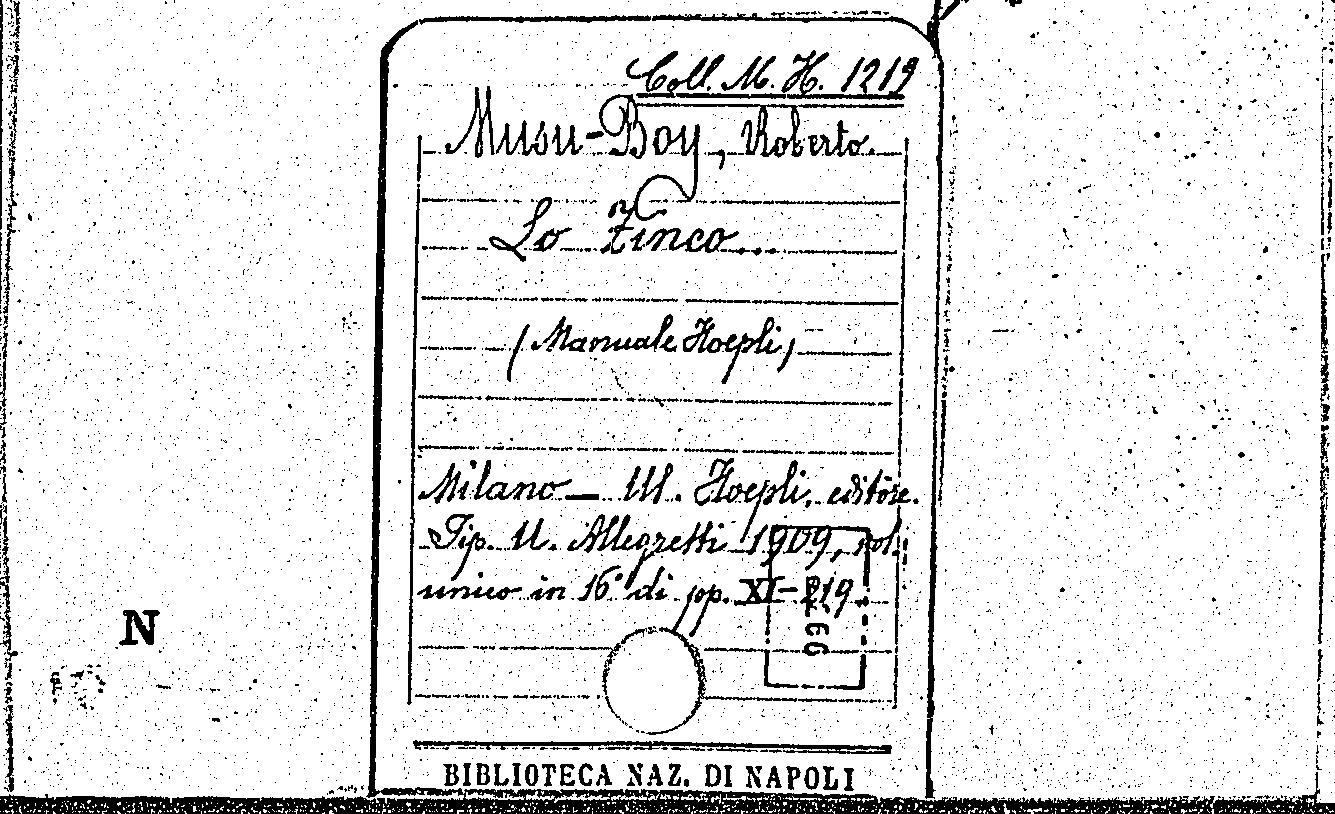 Coll. M. H. 1219
Musu-Boy, Roberto.
Lo Zinco...
(Manuale Hoepli)
Milano – U. Hoepli, editore.
Tip. U. Allegretti 1909, vol.
unico in 16° di pp. XI-219.
N
BIBLIOTECA NAZ. DI NAPOLI